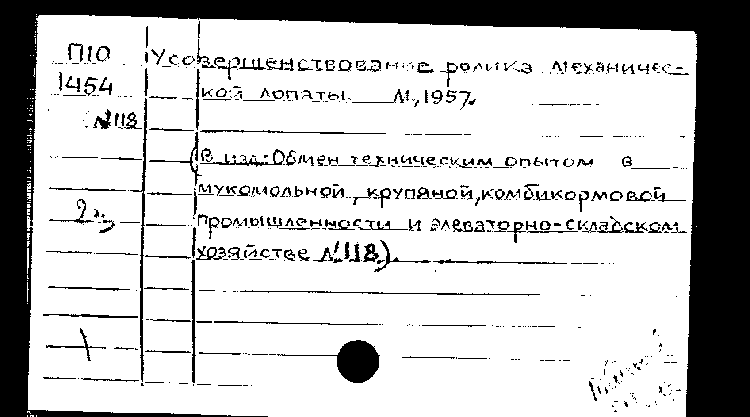 П10
1454
№118
2 э.
Усовершенствование ролика механичес-
кой лопаты. М., 1957.
(В изд.: Обмен техническим опытом в
мукомольной, крупяной, комбикормовой
промышленности и элеваторно-складском
хозяйстве №118).